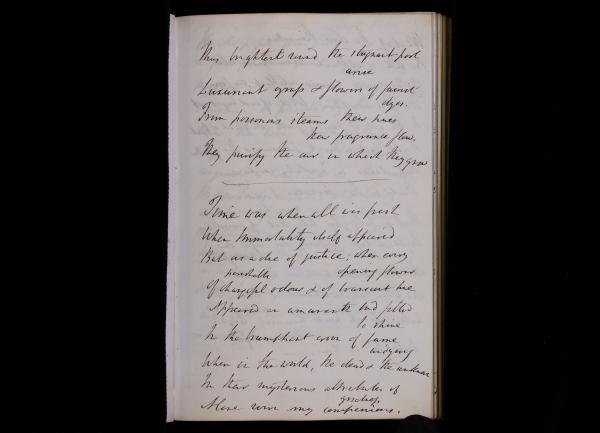 Thus brightest round the stagnant pool
arise
Luxuriant grass & flowers of fairest
dyes.
From poisonous steams their hues
their fragrance flow.
They purify the air in which they grow
Time was when all was fresh
When Immortality itself appeared
But as a dee of justice, when every
perishable opening flower
Of changeful odour & of transient hue
Appeared an amaranth bud fitted
to shine
In the triumphant crown of fame
undying
When in the world, the dead & the unknown
In their mysterious attributes of
More were my companions.